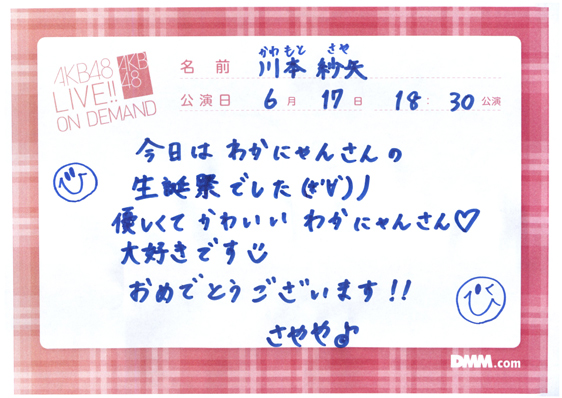 AKB48
LIVE!!
ON DEMAND
AKB
48
かわもと さや
名前 川本 紗矢
公演日 6月 17日 18:30公演
今日は わかにゃんさんの
生誕祭でした(*'∀')ノ
優しくて かわいい わかにゃんさん♡
大好きです
おめでとうございます!!
さやや♪
DMM.com